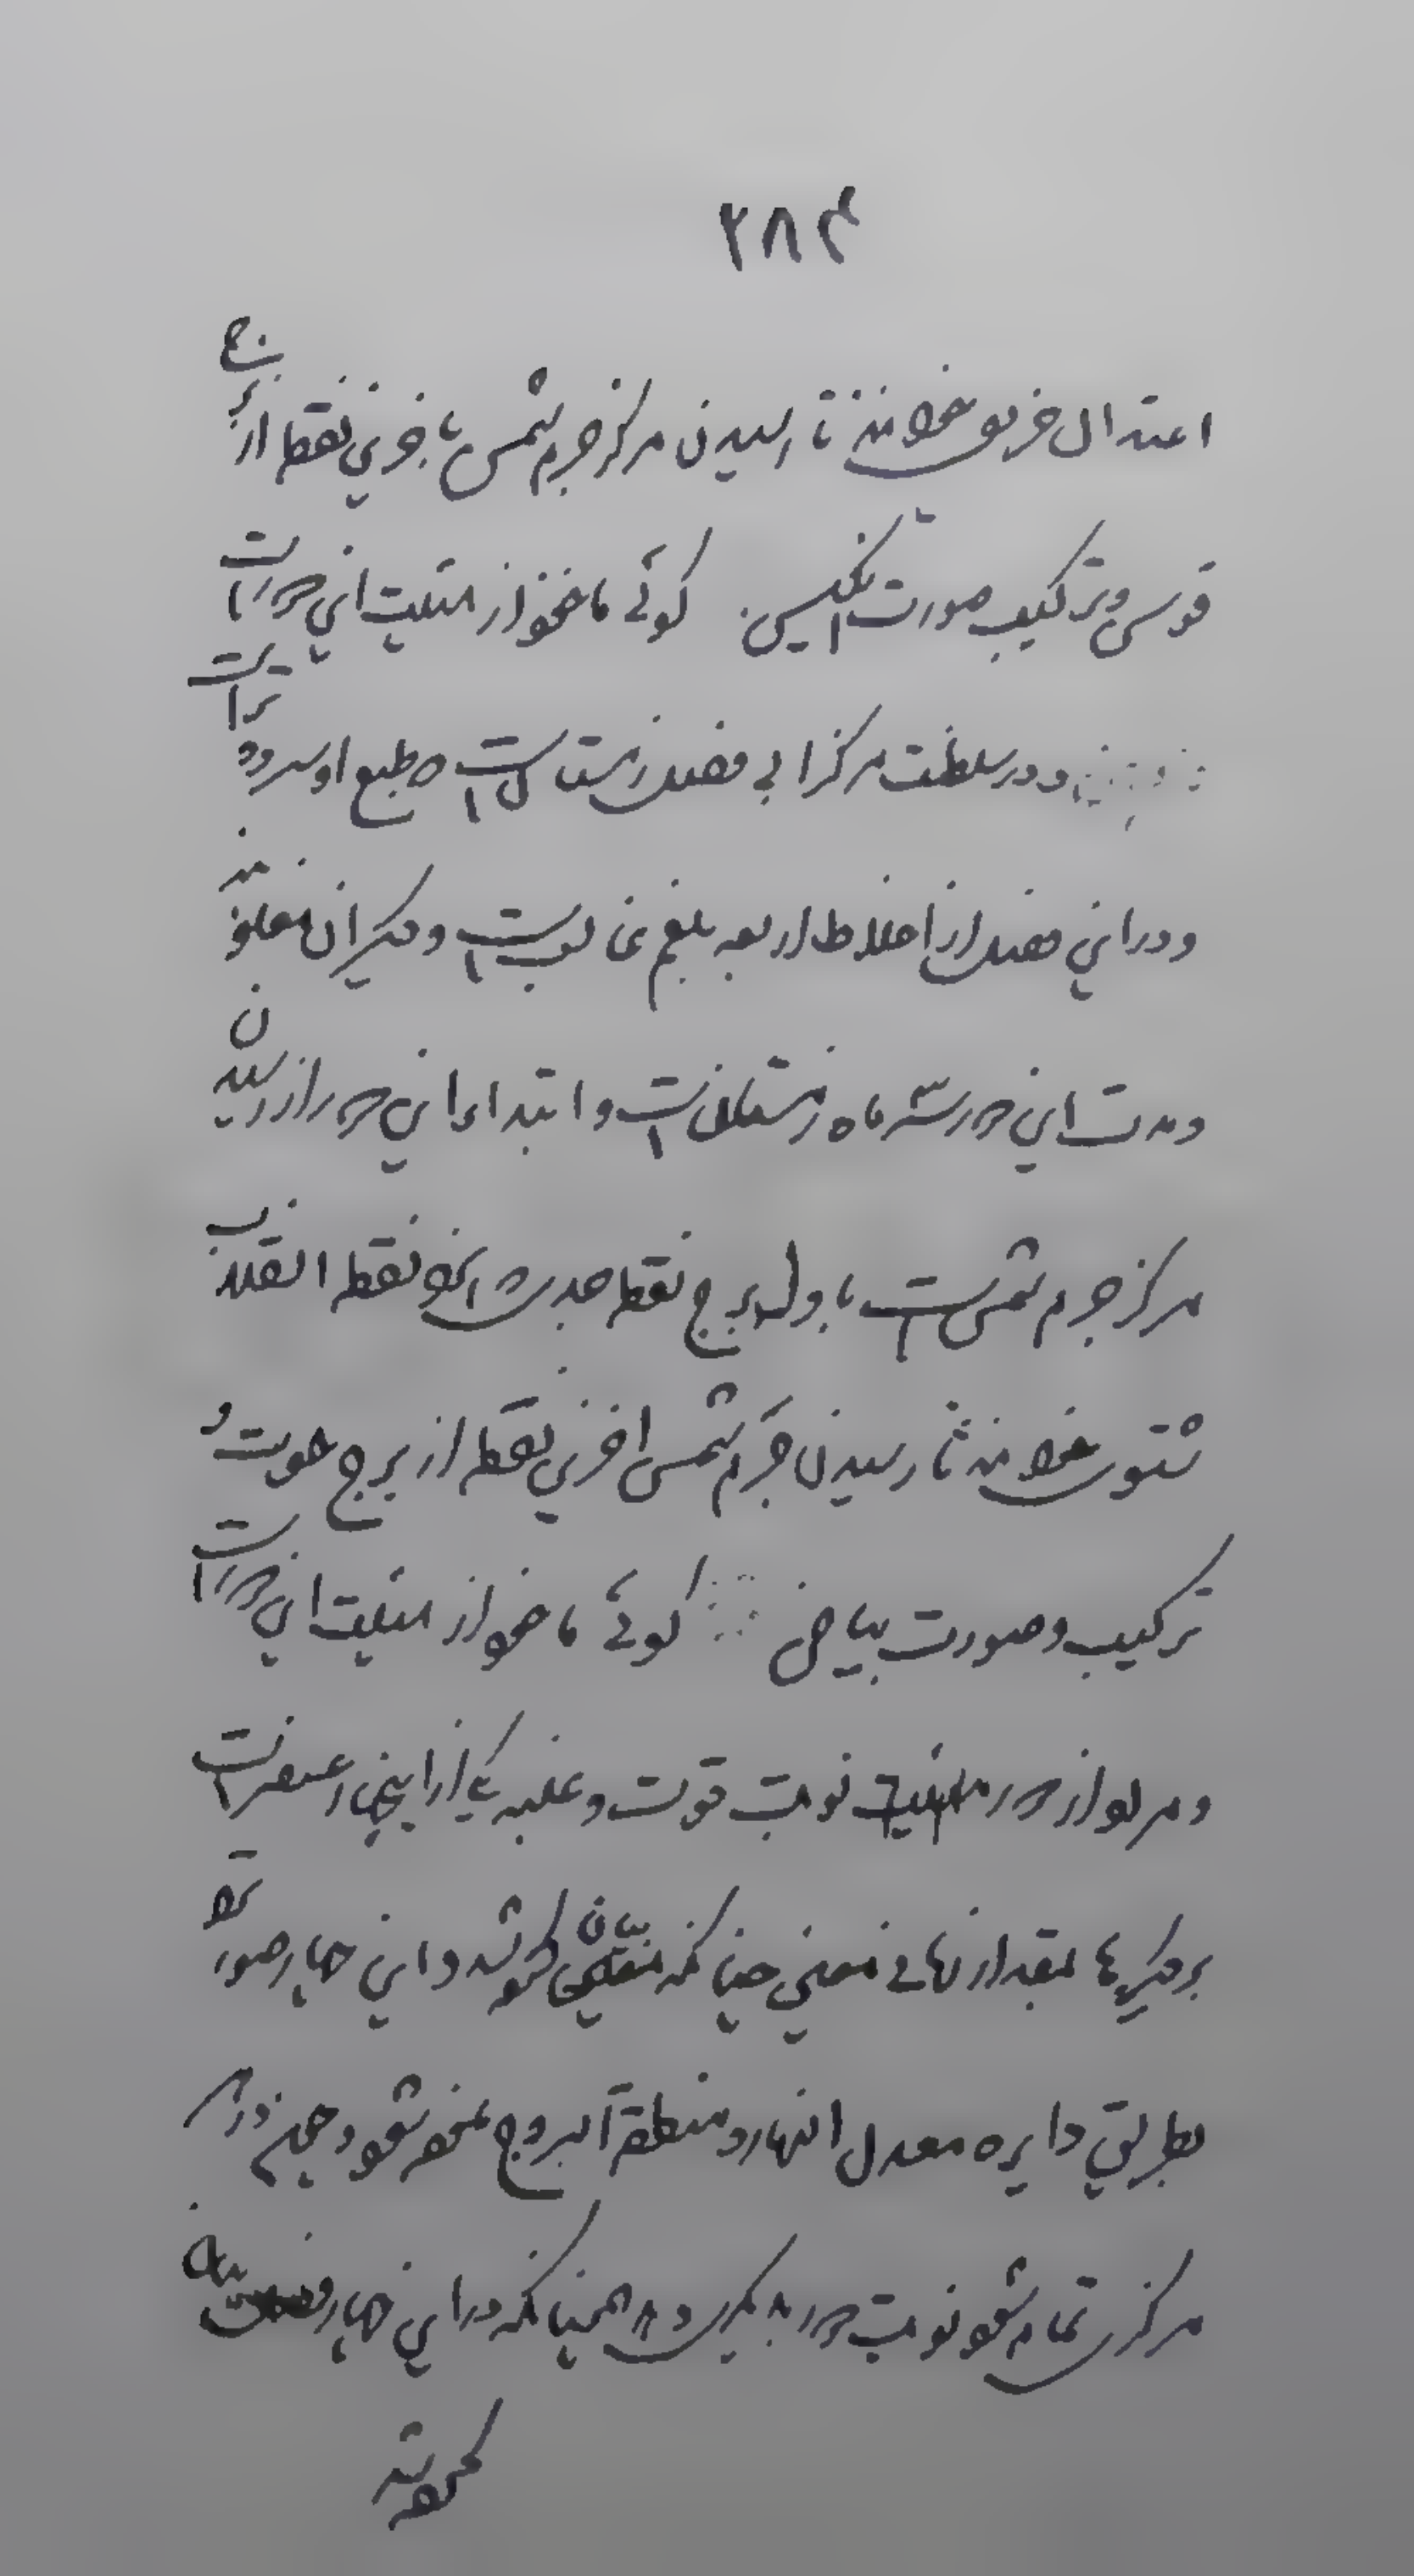 ۲۸۴
اعتدال خریفی خوانند تا رسیدن مرکز جرم شمس باخرین نقطه از برج
قوس و ترکیب صورت انکیس گوئی ماخوذ از مثلیت این دور است
و در سلطنت مرکز ابی فصل زمستان است و طبع او سرد و تر است
و در این فصل از اخلاط اربعه بلغم غالب است و دیگران مغلوبند
و مدت این دور سه ماه زمستان است و ابتداء این دور از رسیدن
مرکز جرم شمس است باول برج نقطه جدی که انرا نقطه انقلاب
شتوی خوانند تا رسیدن جرم شمس اخرین نقطه از برج حوت و
ترکیب و صورت بیاض گوئی ماخوذ از مثلیت این دور است
و مراد از دور نوبت قوت و غلبه یکی از این چهار عنصر است
بر دیگرها بمقدار زمانی معین چنانکه بیان شد و این چهار صورت
بطریق دایره معدل النهار و منطقة البروج شود و چون دور
مرکزی تمام شود نوبت دور بدیگری رسد همچنانکه در این چهار فصل بیان
کرده شد